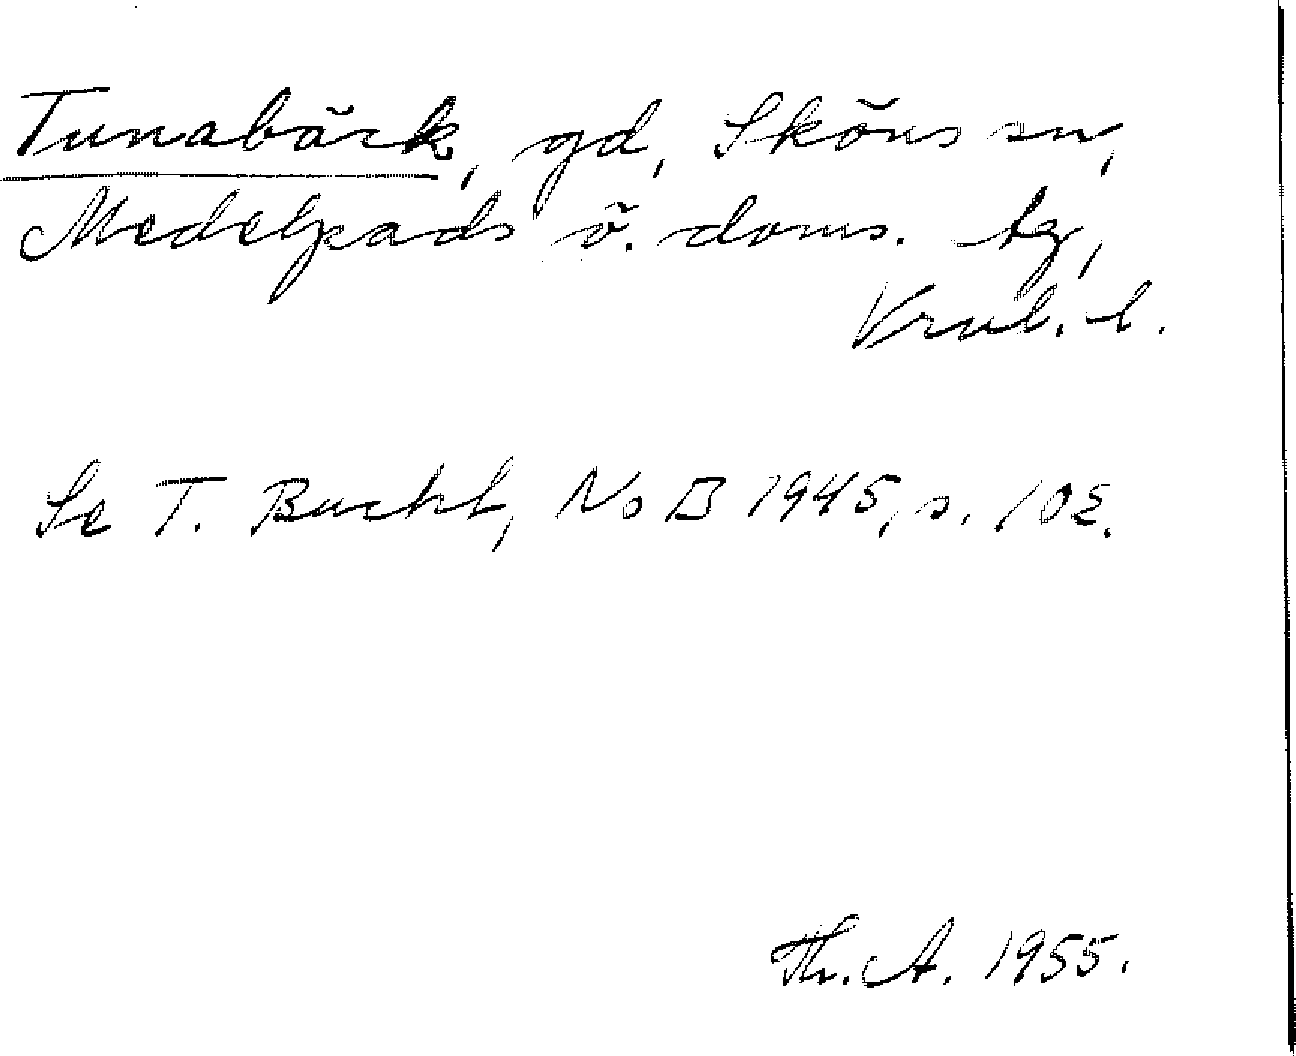 Tunabäck, gd, Sköns sn,
Medelpads ö. doms. tg,
Vrnl. l.
Se T. Bucht, NoB 1945, s. 102.
Th. A. 1955.